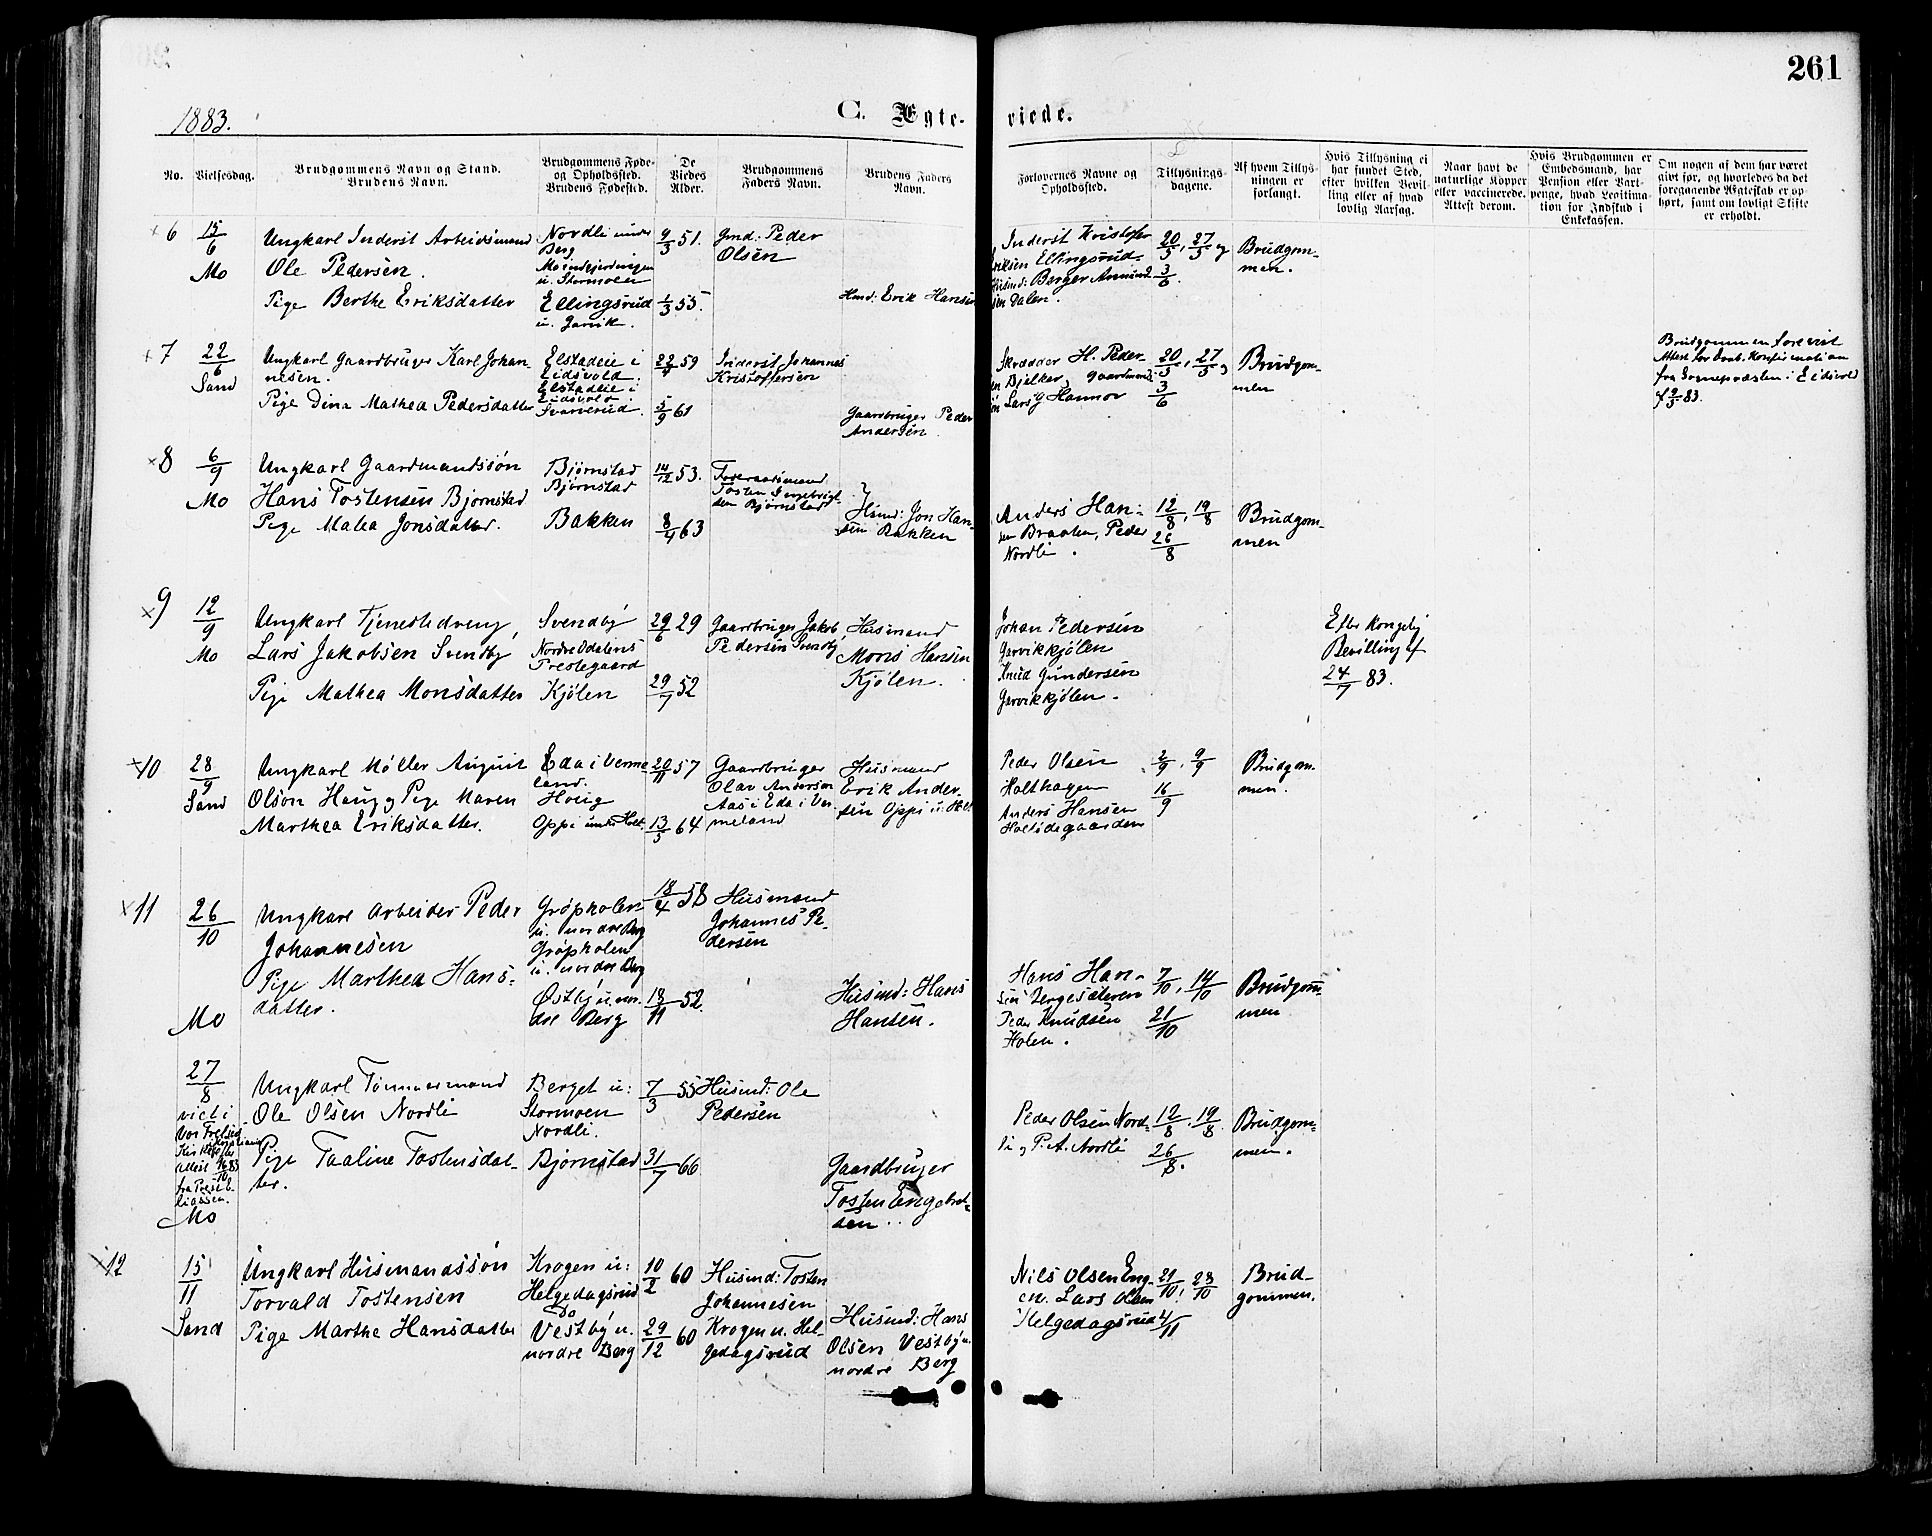 261
1883.
C. Ægte-
viede.
No.
Vielsesdag.
Brudgommens Navn og Stand.
Brudens Navn.
Brudgommens Føde-
og Opholdssted.
Brudens Fødested.
De
Viedes
Alder.
Brudgommens
Faders Navn.
Brudens Faders
Navn.
Forlovernes Navne og
Opholdssted.
Tillysnings-
dagene.
Af hvem Tillys-
ningen er
forlangt.
Hvis Tillysning ei
har fundet Sted,
efter hvilken Bevil-
ling eller af hvad
lovlig Aarsag.
Naar havt de
naturlige Kopper
eller vaccinerede.
Attest derom.
Hvis Brudgommen er
Embedsmand, har
Pension eller Vart-
penge, hvad Legitima-
tion for Indskud i
Enkekassen.
Om nogen af dem har været
gift før, og hvorledes da det
foregaaende Ægteskab er op-
hørt, samt om lovligt Skifte
er erholdt.
x 6
15/6
Mo
Ungkarl Inderst Arbeidsmand
Ole Pedersen.
Pige Berthe Eriksdatter
Nordli under
Berg
Moindgjerdingen
u. Stormoen
Ellingsrud
u. Garvik.
9/3 51.
1/3 55.
Gmd: Peder
Olsen
Hmd: Erik Hansen
Inderst Kristofer
Eriksen Ellingsrud
Husmd: Berger Amund
sen Dalen.
20/5, 27/5 og
3/6.
Brudgom-
men.
x 7
22/6
Sand
Ungkarl Gaardbruger Karl Johan-
nesen.
Pige Dina Mathea Pedersdatter
Elstadeie i
Eidsvold.
Elstadeie i
Eidsvold.
Svarverud.
22/4 59
5/9 61
Inderst Johannes
Kristoffersen
Gaardbruger Peder
Andersen.
Skrædder H. Peder-
sen Bjelker, Gaardmands-
søn Lars G Hannor
20/5, 27/5 og
3/6
Brudgom-
men
Brudgommen forevist
Attest for Daab, Konfirmation
fra Sognepræsten i Eidsvold
83.
x 8
6/9
Mo
Ungkarl Gaardmandssøn
Hans Tostensen Bjørnstad
Pige Malea Jonsdatter.
Bjørnstad
Bjørnstad
Bakken
14/12 53.
8/4 63
Foderaadsmand
Tosten Engebrigt-
sen Bjørnstad
Husmd: Jon Han-
sen Bakken
Anders Han-
sen Braaten, Peder
Nordli.
12/8, 19/8
26/8
Brudgom-
men
x 9
12/9
Mo
Ungkarl Tjenestedreng,
Lars Jakobsen Svendby
Pige Mathea Monsdatter
Svendby
Nordre Odalens
Prestegaard
Kjølen
29/6 29
29/7 52
Gaardbruger Jakob
Pedersen Svendby
Husmand
Mons Hansen
Kjølen.
Johan Pedersen
Garvikkjølen
Knud Gundersen
Garvikkjølen.
Efter Kongelig
Bevilling af
24/7 83.
x 10
28/9
Sand
Ungkarl Møller August
Olson Haug og Pige Maren
Marthea Eriksdatter.
Eda i Verme-
land.
Houg
Oppi under Holt.
20/11 57
13/5 64
Gaardbruger
Olav Anderson
Aas i Eda i Ver-
meland
Husmand
Erik Ander-
sen Oppi u: Holt
Peder Olsen
Holthagen
Anders Hansen
Holtsdegaarden
2/9, 9/9
16/9
Brudgom-
men.
x 11
26/10
Mo
Ungkarl Arbeider Peder
Johannesen
Pige Marthea Hans-
datter.
Grøpholen
u. nordre Berg
Grøpholen
u. nordre Berg
Østby u. nor-
dre Berg
18/4 58
18/11 52.
Husmand
Johannes Pe-
dersen
Husmd: Hans
Hansen.
Hans Han-
sen Bergesæteren
Peder Knudsen
Holen.
7/10, 14/10
21/10
Brudgom-
men
27/8
viet i
Vor Frelsers
Kirke
Mo
Ungkarl Tømmermand
Ole Olsen Nordli
Pige Taaline Tostensdat-
ter.
Berget u:
Stormoen
Nordli.
Bjørnstad
7/3 55
31/7 66
Husmd: Ole
Pedersen
Gaardbruger
Tosten Engebret-
sen..
Peder Olsen Nord-
li og P. A. Nordli
12/8. 19/8
26/8.
Brudgom-
men.
x 12
15/11
Sand
Ungkarl Husmandssøn
Torvald Tostensen
Pige Marthe Hansdatter
Krogen u:
Helgedagsrud
Do
Vestby u.
nordre Berg
10/2 60
29/12 60
Husmd: Tosten
Johannesen
Krogen u. Hel-
gedagsrud
Husmd: Hans
Olsen Vestby u.
nordre Berg
Nils Olsen Eng-
en. Lars Olsen
Helgedagsrud
21/10, 28/10
4/11
Brud-
gommen.